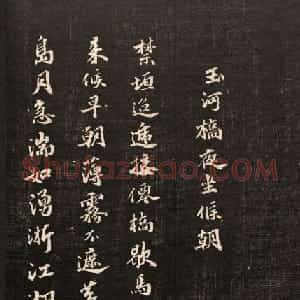 玉河橋夜坐候朝
禁垣迢遞接僊橋歇馬
来候早朝薄霧不遮
島月急湍如湧浙江
shufazidao.com